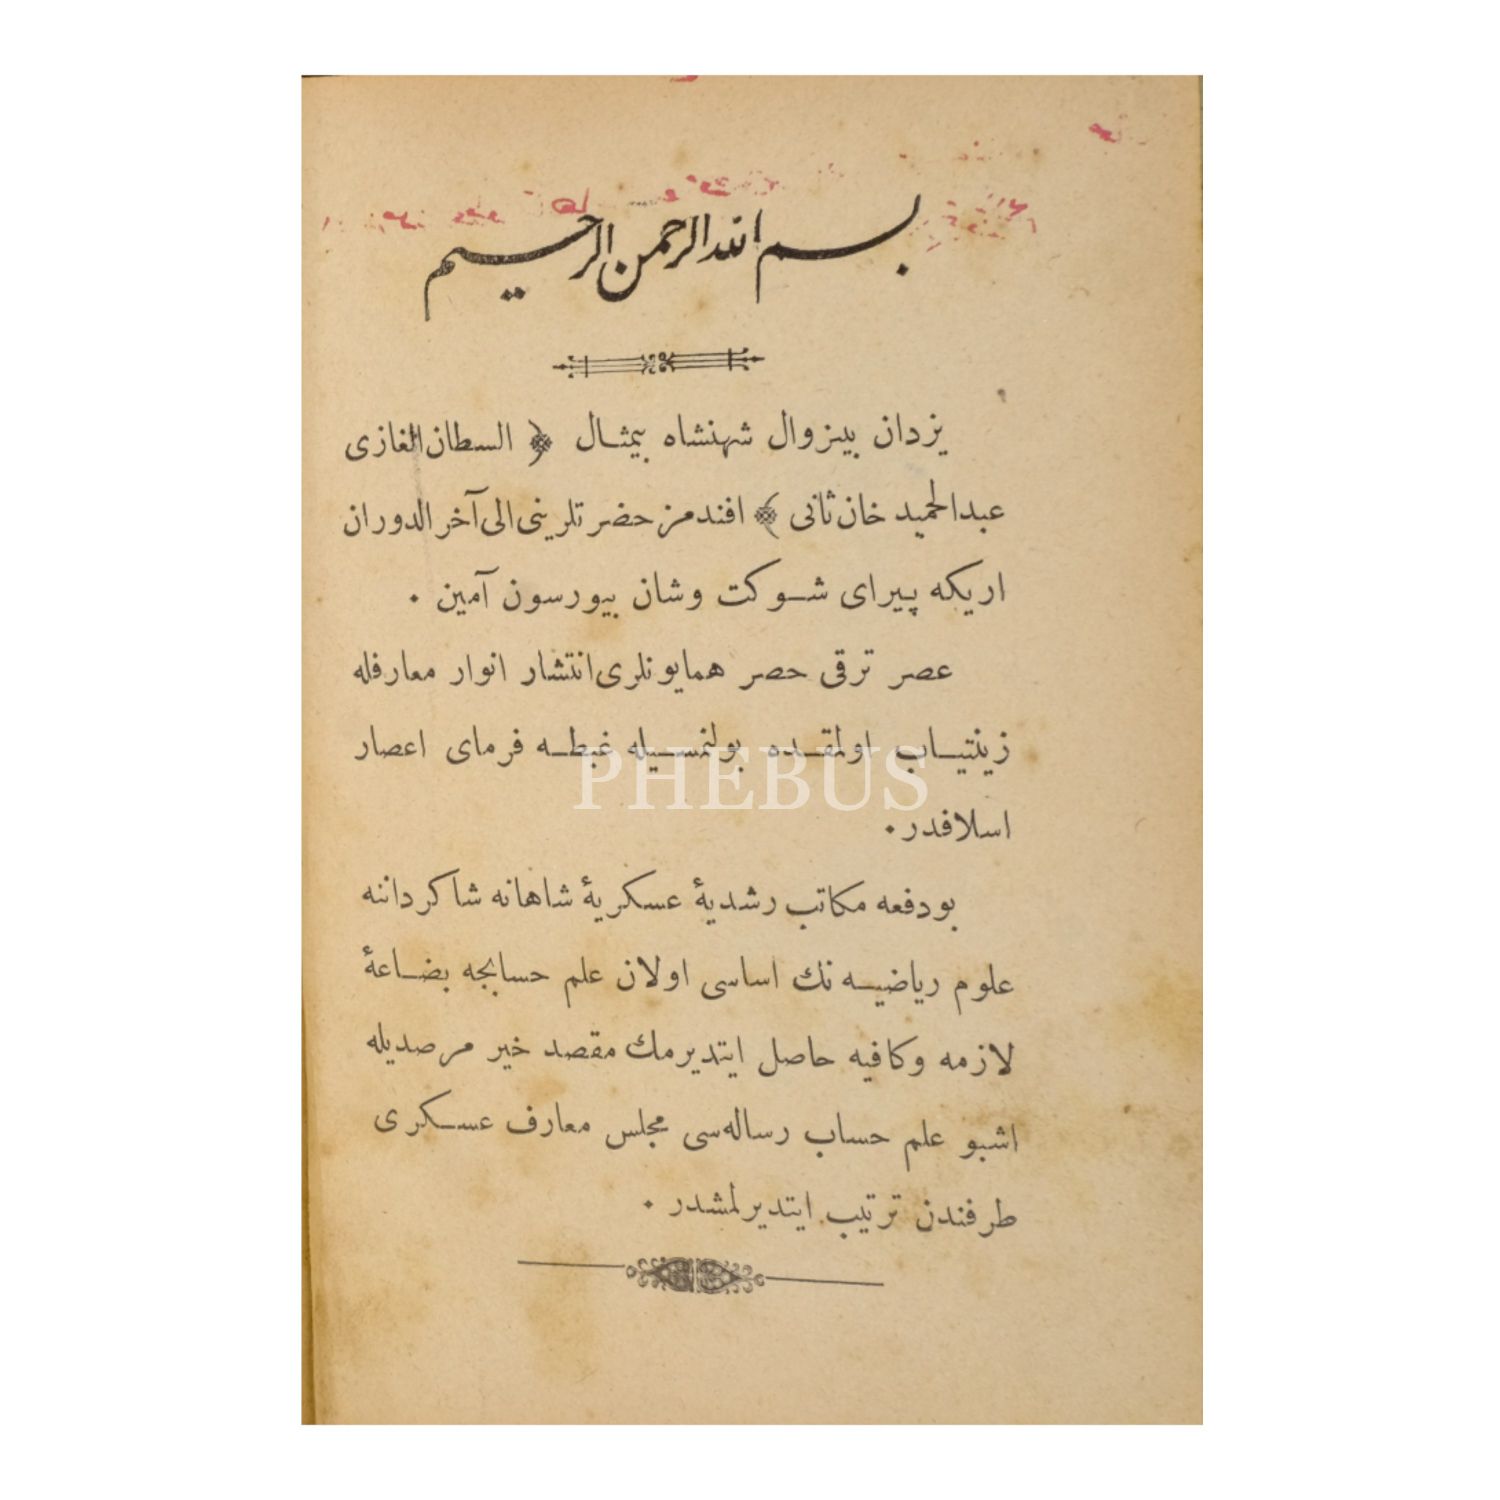 بسم الله الرحمن الرحيم
يزدان بيزوال شهنشاه بيمثال ﴿ السطان الغازى
عبدالحميد خان ثانى ﴾ افندمز حضرتلرينى الى آخر الدوران
اريكه پيراى شوكت وشان بيورسون آمين ٠
عصر ترقى حصر همايونلرى انتشار انوار معارفله
زينتياب اولمقده بولنمسيله غبطه فرماى اعصار
اسلافدر ٠
بودفعه مكاتب رشديۀ عسكريۀ شاهانه شاكرداننه
علوم رياضيه نك اساسى اولان علم حسابجه بضاعۀ
لازمه وكافيه حاصل ايتديرمك مقصد خير مرصديله
اشبو علم حساب رساله‌سى مجلس معارف عسكرى
طرفندن ترتيب ايتديرلمشدر ٠
PHEBUS